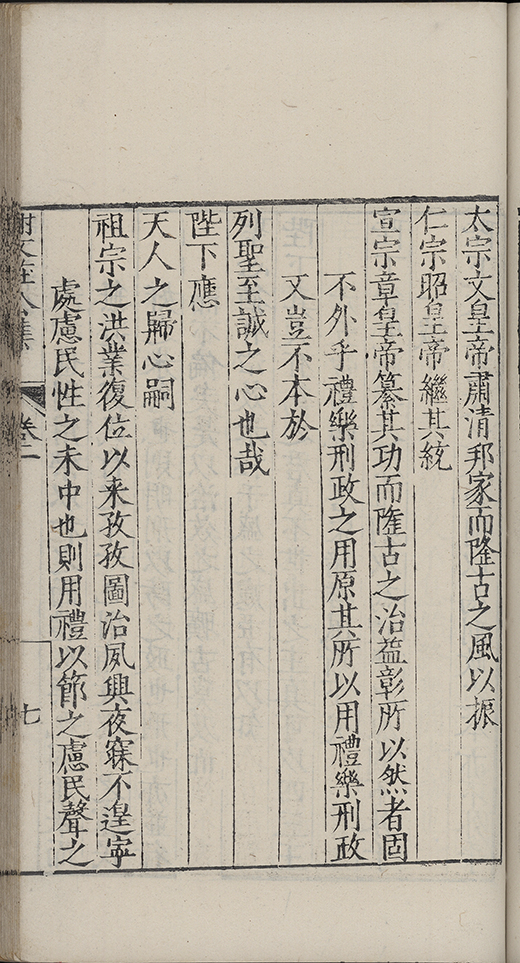 太宗文皇帝肅清邦家而隆古之風以振
仁宗昭皇帝繼其統
宣宗章皇帝纂其功而隆古之治益彰所以然者固
不外乎禮樂刑政之用原其所以用禮樂刑政
又豈不本於
列聖至誠之心也哉
陛下應
天人之歸心嗣
祖宗之洪業復位以来孜孜圖治夙興夜寐不遑寧
處慮民性之未中也則用禮以節之慮民聲之
卷二
七